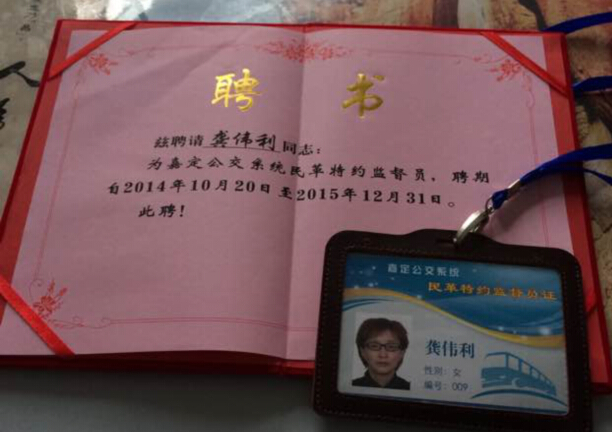 聘书
兹聘请 龚伟利 同志：
为嘉定公交系统民革特约监督员，聘期
自2014年10月20日至2015年12月31日。
此聘！
嘉定公交系统
民革特约监督员证
龚伟利
性别：女
编号：009